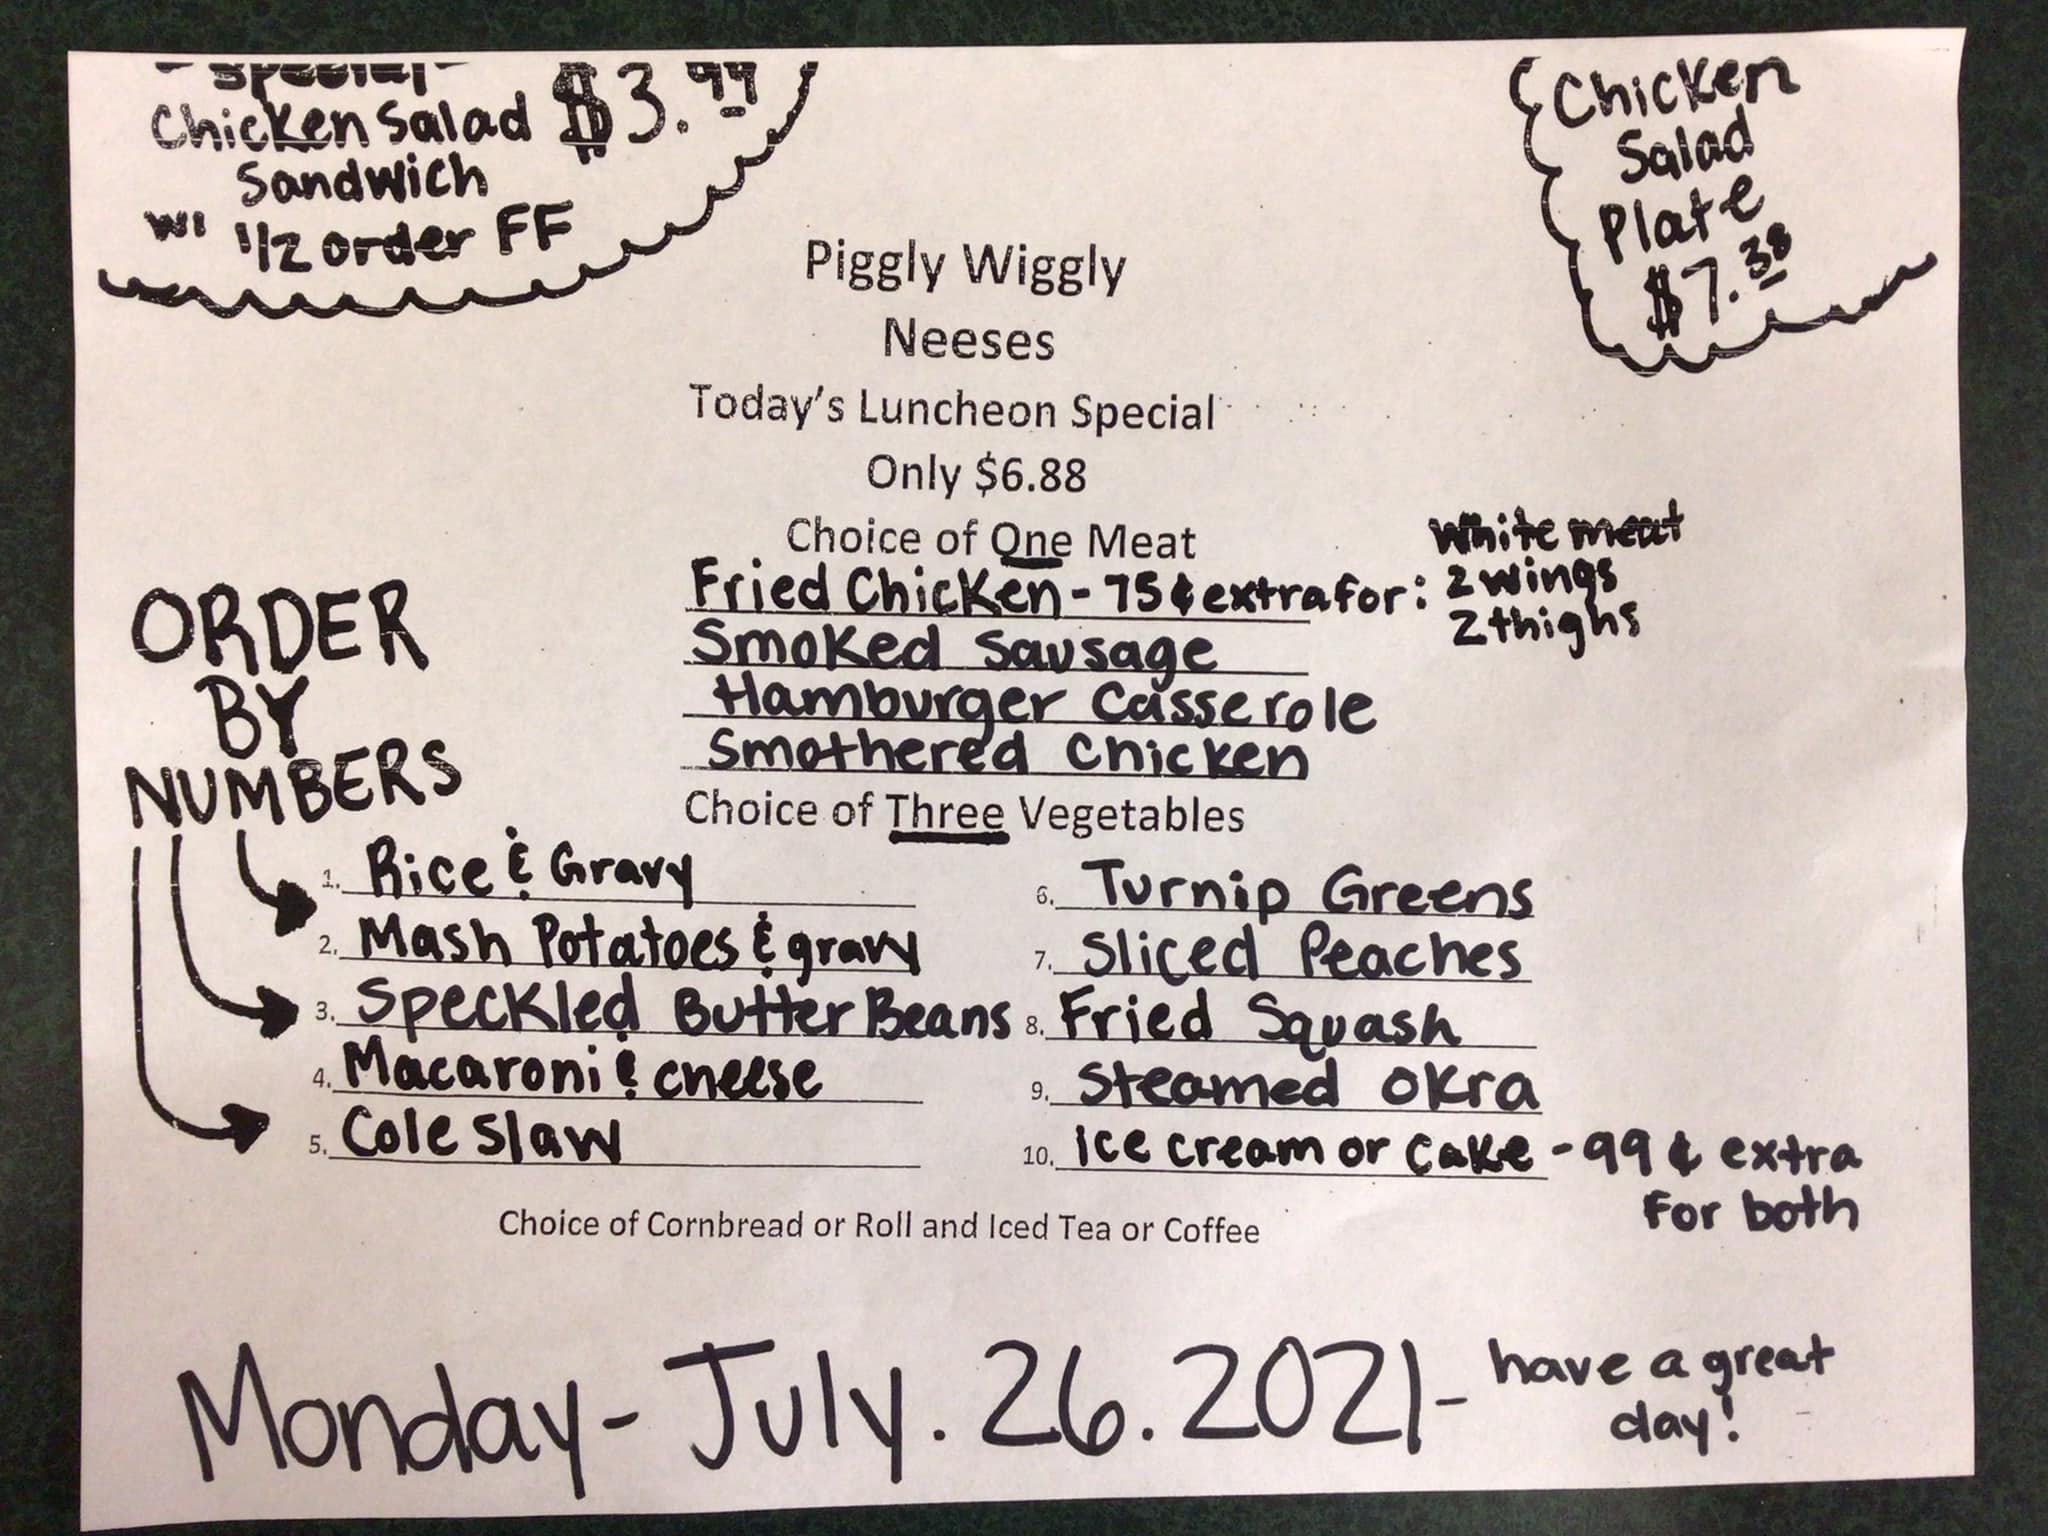 - Special -
Chicken Salad $3.99
Sandwich
w/ 1/2 order FF
Chicken
Salad
Plate
$7.38
Piggly Wiggly
Neeses
Today's Luncheon Special
Only $6.88
Choice of One Meat
Fried Chicken - 75¢ extra for: White meat
2 wings
2 thighs
Smoked Sausage
Hamburger Casserole
Smothered Chicken
ORDER
BY
NUMBERS
Choice of Three Vegetables
1. Rice & Gravy
2. Mash Potatoes & gravy
3. Speckled Butter Beans
4. Macaroni & cheese
5. Cole Slaw
6. Turnip Greens
7. Sliced Peaches
8. Fried Squash
9. Steamed Okra
10. ice cream or cake - 99¢ extra
for both
Choice of Cornbread or Roll and Iced Tea or Coffee
Monday - July. 26. 2021 - have a great
day!